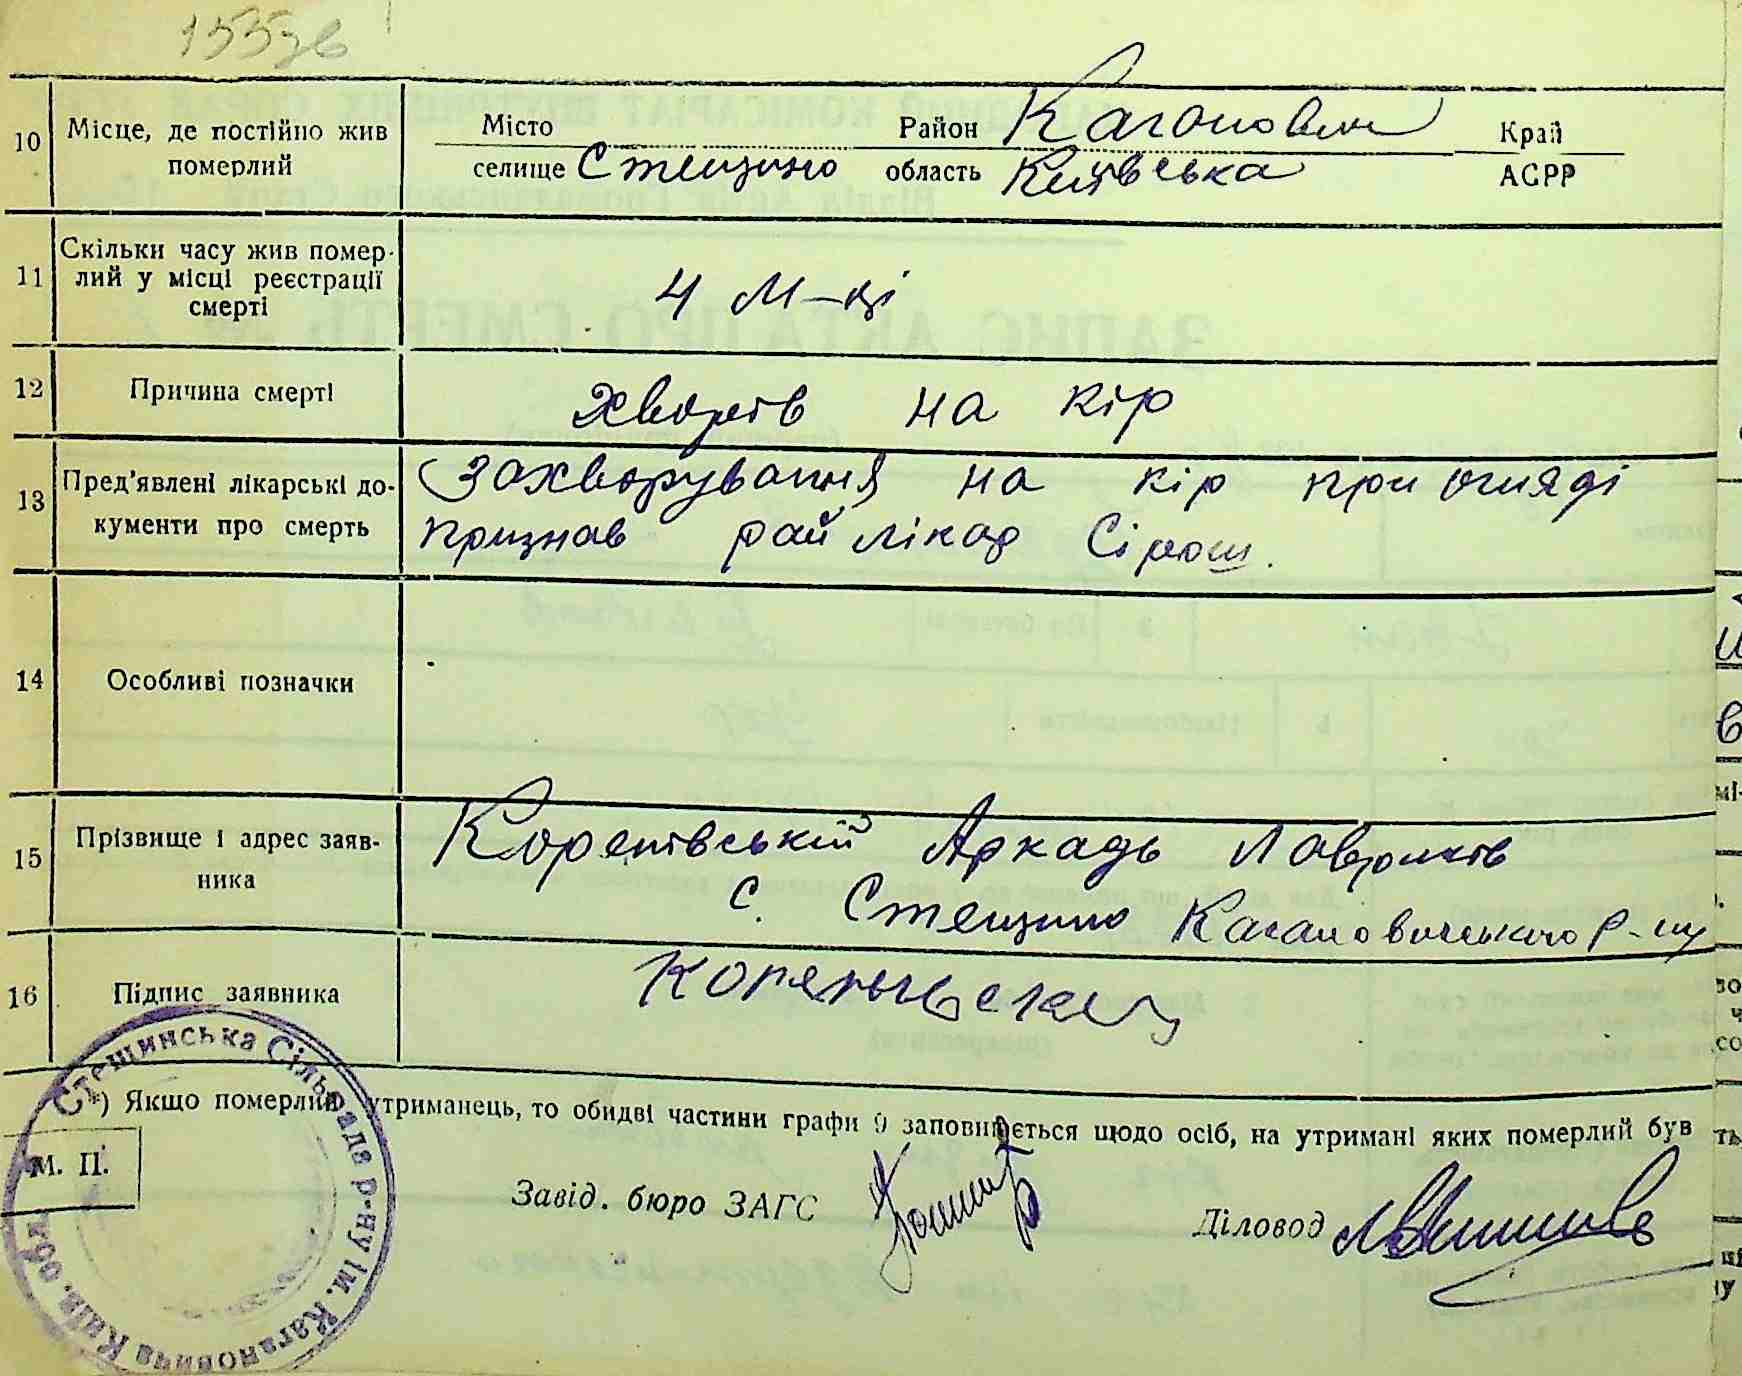 10 Місце, де постійно жив померлий
Місто Район Каганович Край
селище Стещино область Київська АСРР
11 Скільки часу жив помер-
лий у місці реєстрації
смерті
4 м-ці
12 Причина смерті
хворів на кір
13 Пред'явлені лікарські до-
кументи про смерть
Захворування на кір при огляді
признав рай лікар
14 Особливі позначки
15 Прізвище і адрес заяв-
ника
Аркадь
с. Стещино Кагановичського р-ну
16 Підпис заявника
Стещинська Сільрада р-ну ім. Кагановича Київ. обл.
*) Якщо померлий утриманець, то обидві частини графи 9 заповнюється щодо осіб, на утримані яких померлий був
М. П.
Завід. бюро ЗАГС
Діловод